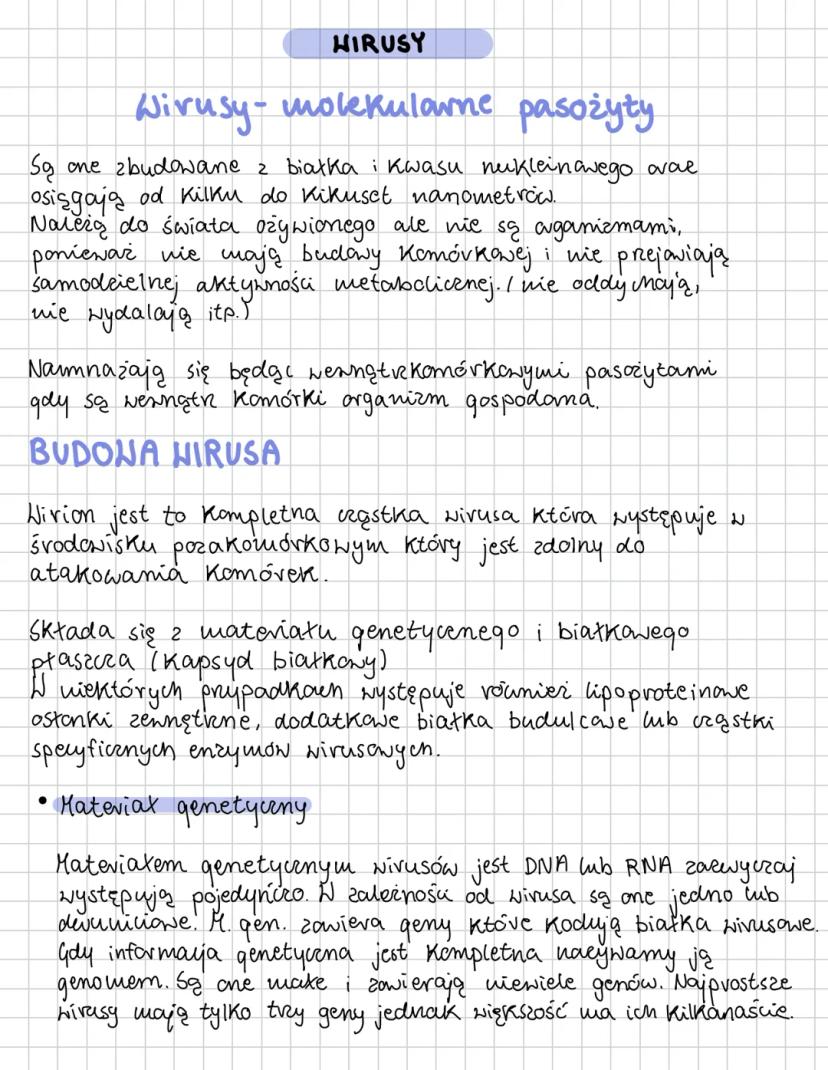 WIRUSY
Wirusy - molekularne pasożyty
Są one zbudowane z białka i kwasu nukleinowego oraz
osiągają od kilku do kikuset nanometrów.
Należą do świata ożywionego ale nie są organizmami,
ponieważ nie mają budowy komórkowej i nie przejawiają
samodzielnej aktywności metabolicznej. (nie oddychają,
nie wydalają itp.)
Namnażają się będąc wewnątrzkomórkowymi pasożytami
gdy są wewnątrz komórki organizm gospodarna.
BUDOWA WIRUSA
Wirion jest to kompletna cząstka wirusa która występuje w
środowisku pozakomórkowym który jest zdolny do
atakowania komórek.
Składa się z materiału genetycznego i białkowego
płaszcza (kapsyd białkowy)
W niektórych przypadkach występuje również lipoproteinowe
osłonki zewnętrzne, dodatkowe białka budulcowe lub cząstki
specyficznych enzymów wirusowych.
• Materiał genetyczny
Materiałem genetycznym wirusów jest DNA lub RNA zazwyczaj
występują pojedyńczo. W zależności od wirusa są one jedno lub
dwuniciowe. M. gen. zawiera geny które kodują białka wirusowe.
Gdy informacja genetyczna jest kompletna nazywamy ją
genomem. Są one małe i zawierają niewiele genów. Najprostsze
wirusy mają tylko trzy geny jednak większość ma ich kilkanaście.